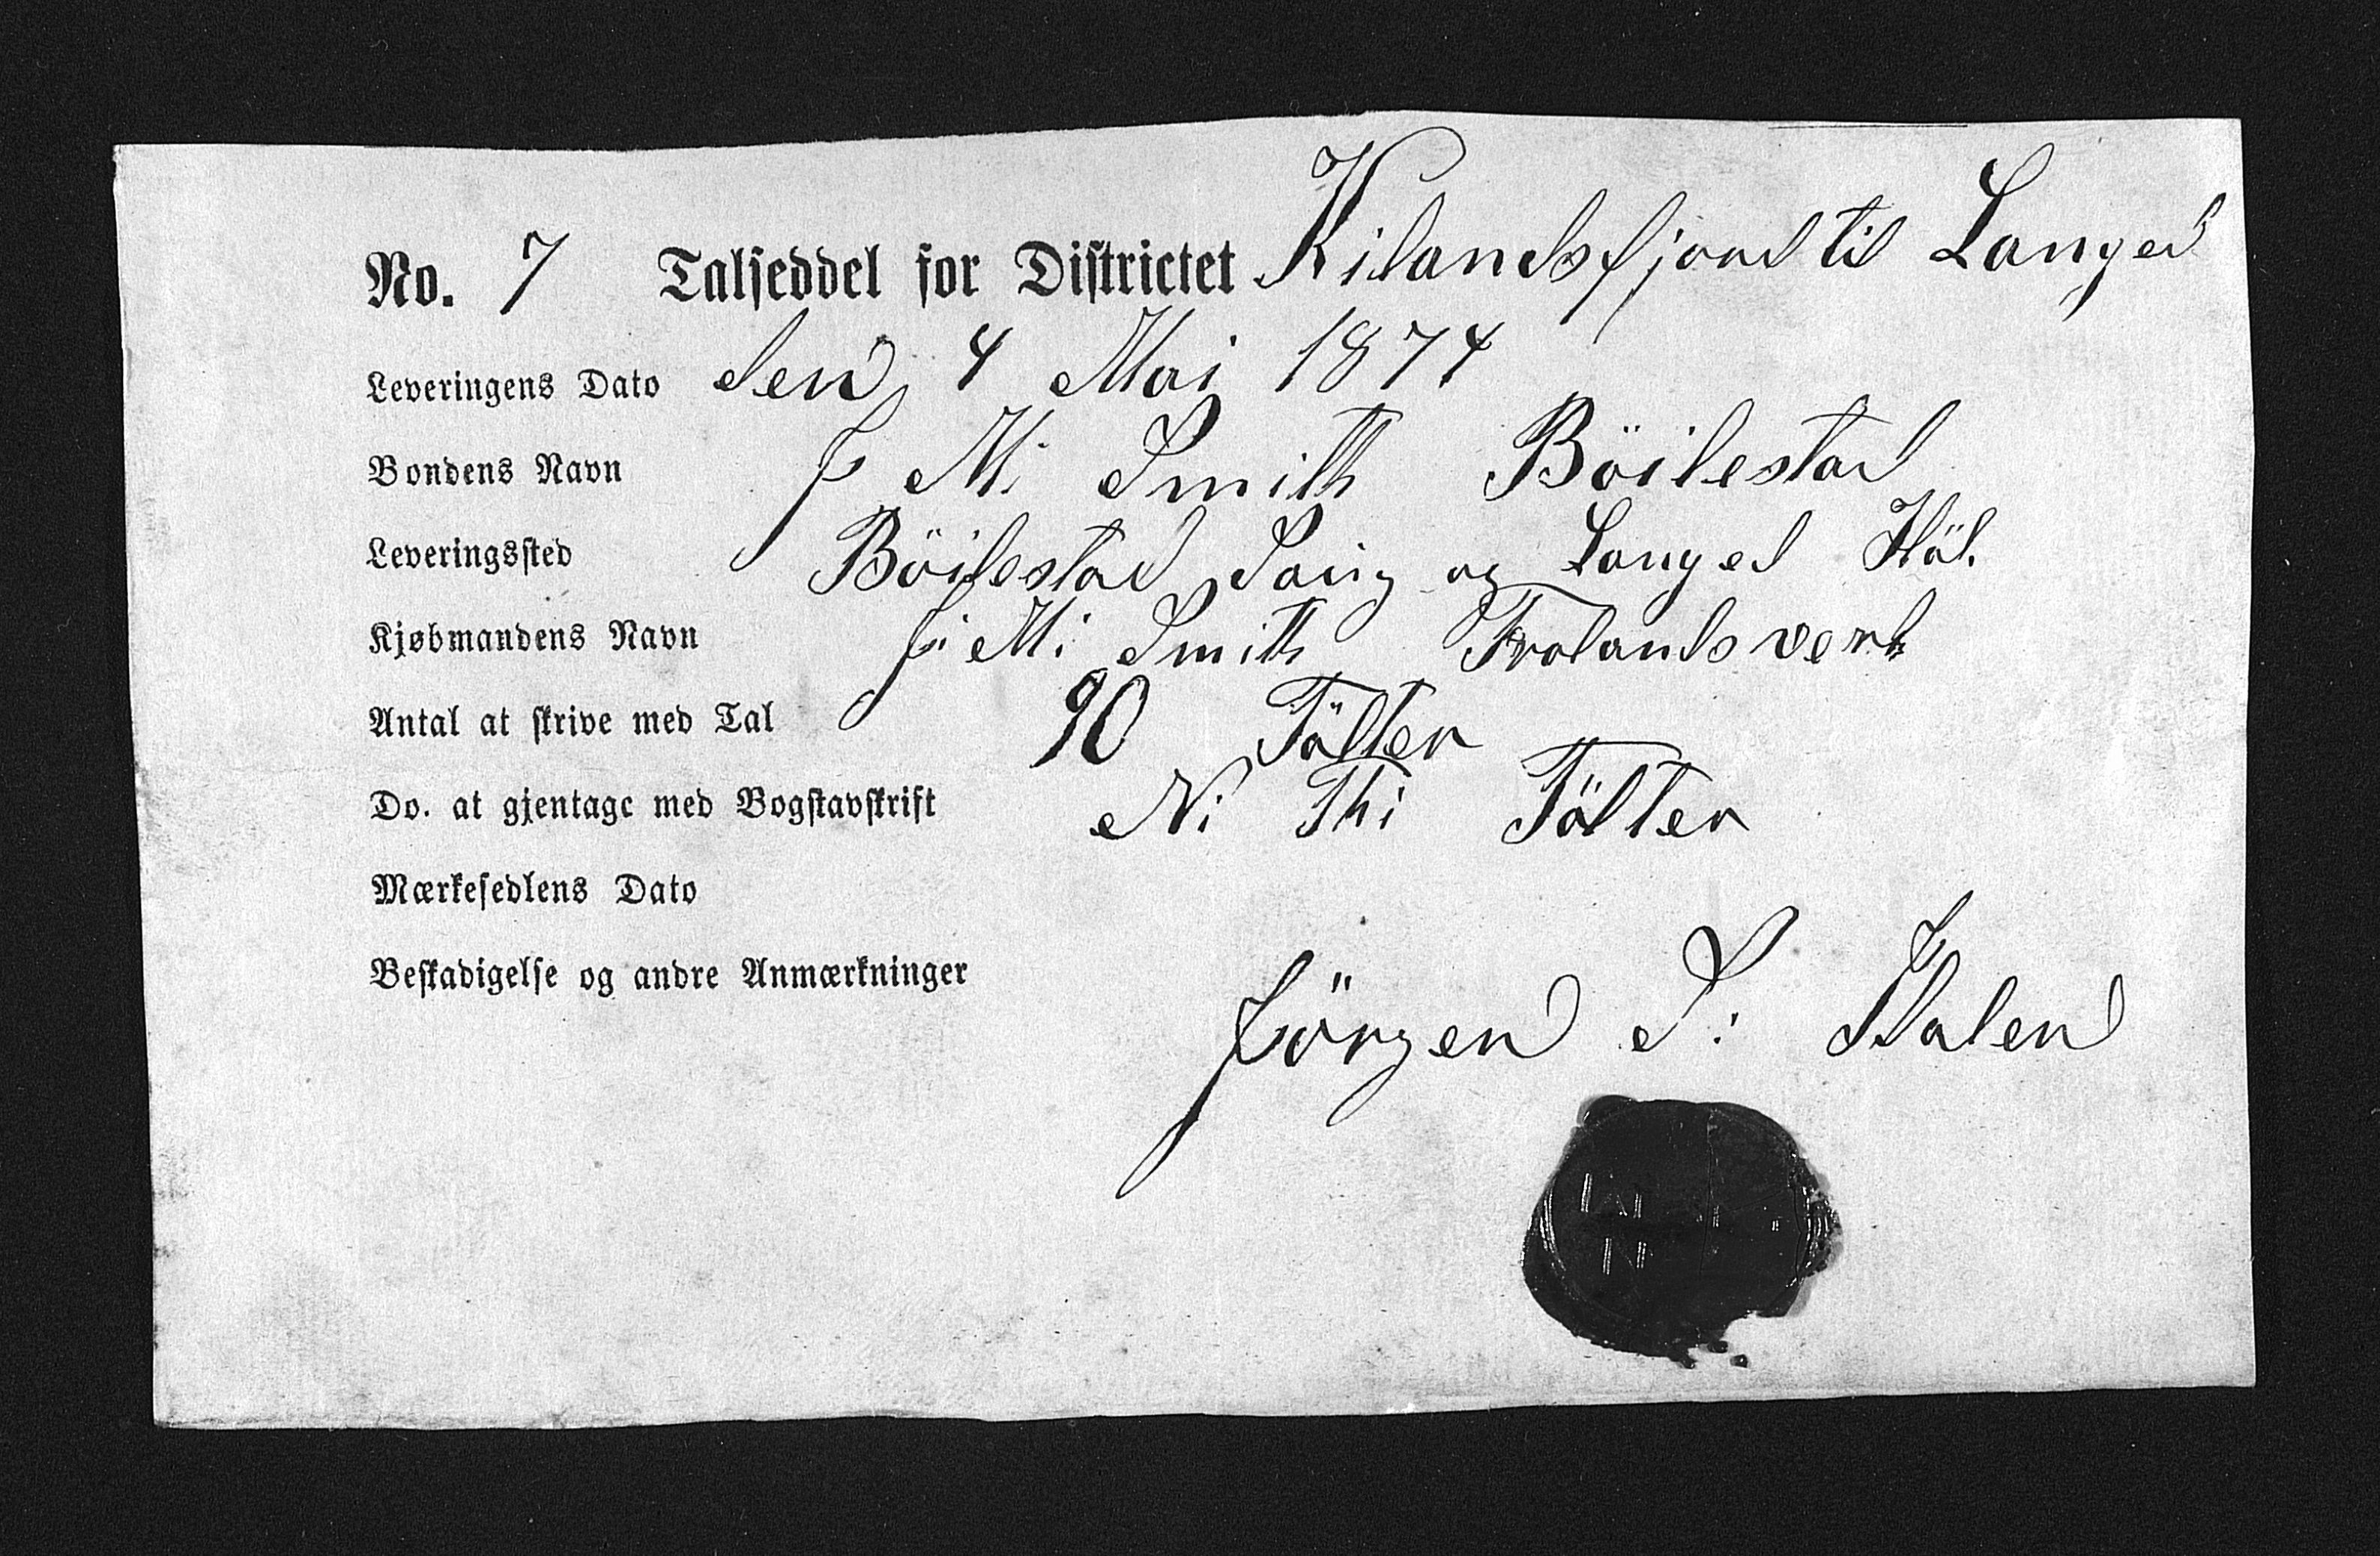 No. 7 Talseddel for Districtet Kilandsfjord til Langed
Leveringens Dato den 4 Mai 1874
Bondens Navn J Mi Smith Böilestad
Leveringssted Böilestad Saug og Langed Höl.
Kjøbmandens Navn J: M: Smith Frolands verk
Antal at skrive med Tal 90 Tölter
Do. at gjentage med Bogstavskrift Ni Thi Tölter
Mærkesedlens Dato
Beskadigelse og andre Anmærkninger
Jörgen S: Dalen